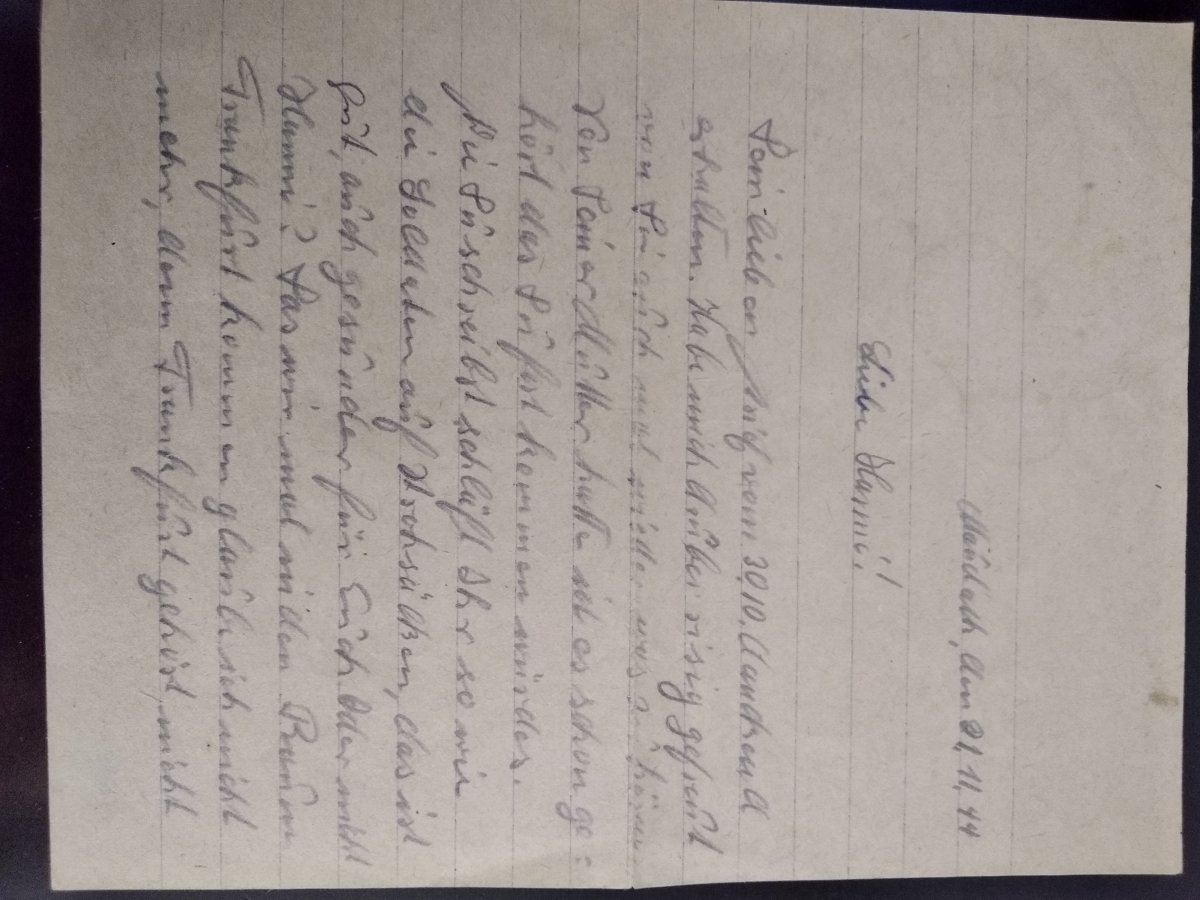 den 21.11.44
Liebe Hanni!
Dein lieben Brief vom 30.10. dankend
erhalten. Habe mich drüber risig gefreut
von Dir auch mal wieder was zu hören.
Von Deiner Mutter hatte ich es schon ge=
hört das Du fort kommen würdes.
Wie Du schreibst schläft Ihr so wie
die Soldaten auf Strohsäcken, das ist
gut, auch gesünder für Euch oder nicht
Hanni? Das wir mal wieder Raum
Frankfurt kommen glaube ich nicht
mehr, denn Frankfurt gehört nicht